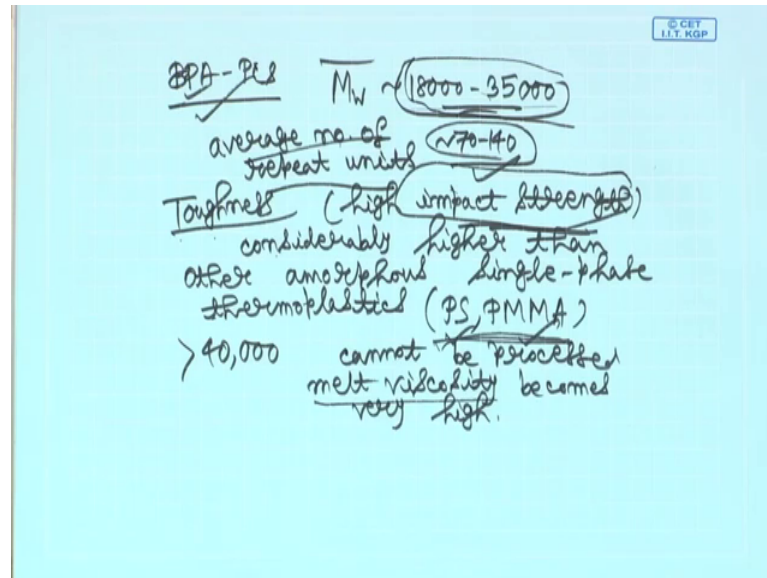 © CET
I.I.T. KGP
BPA-PCs M̅w ~ 18000 - 35000
average no. of
repeat units ~70-140
Toughness (high impact strength)
considerably higher than
other amorphous single-phase
thermoplastics (PS, PMMA)
>40,000 cannot be processed
melt viscosity becomes
very high.